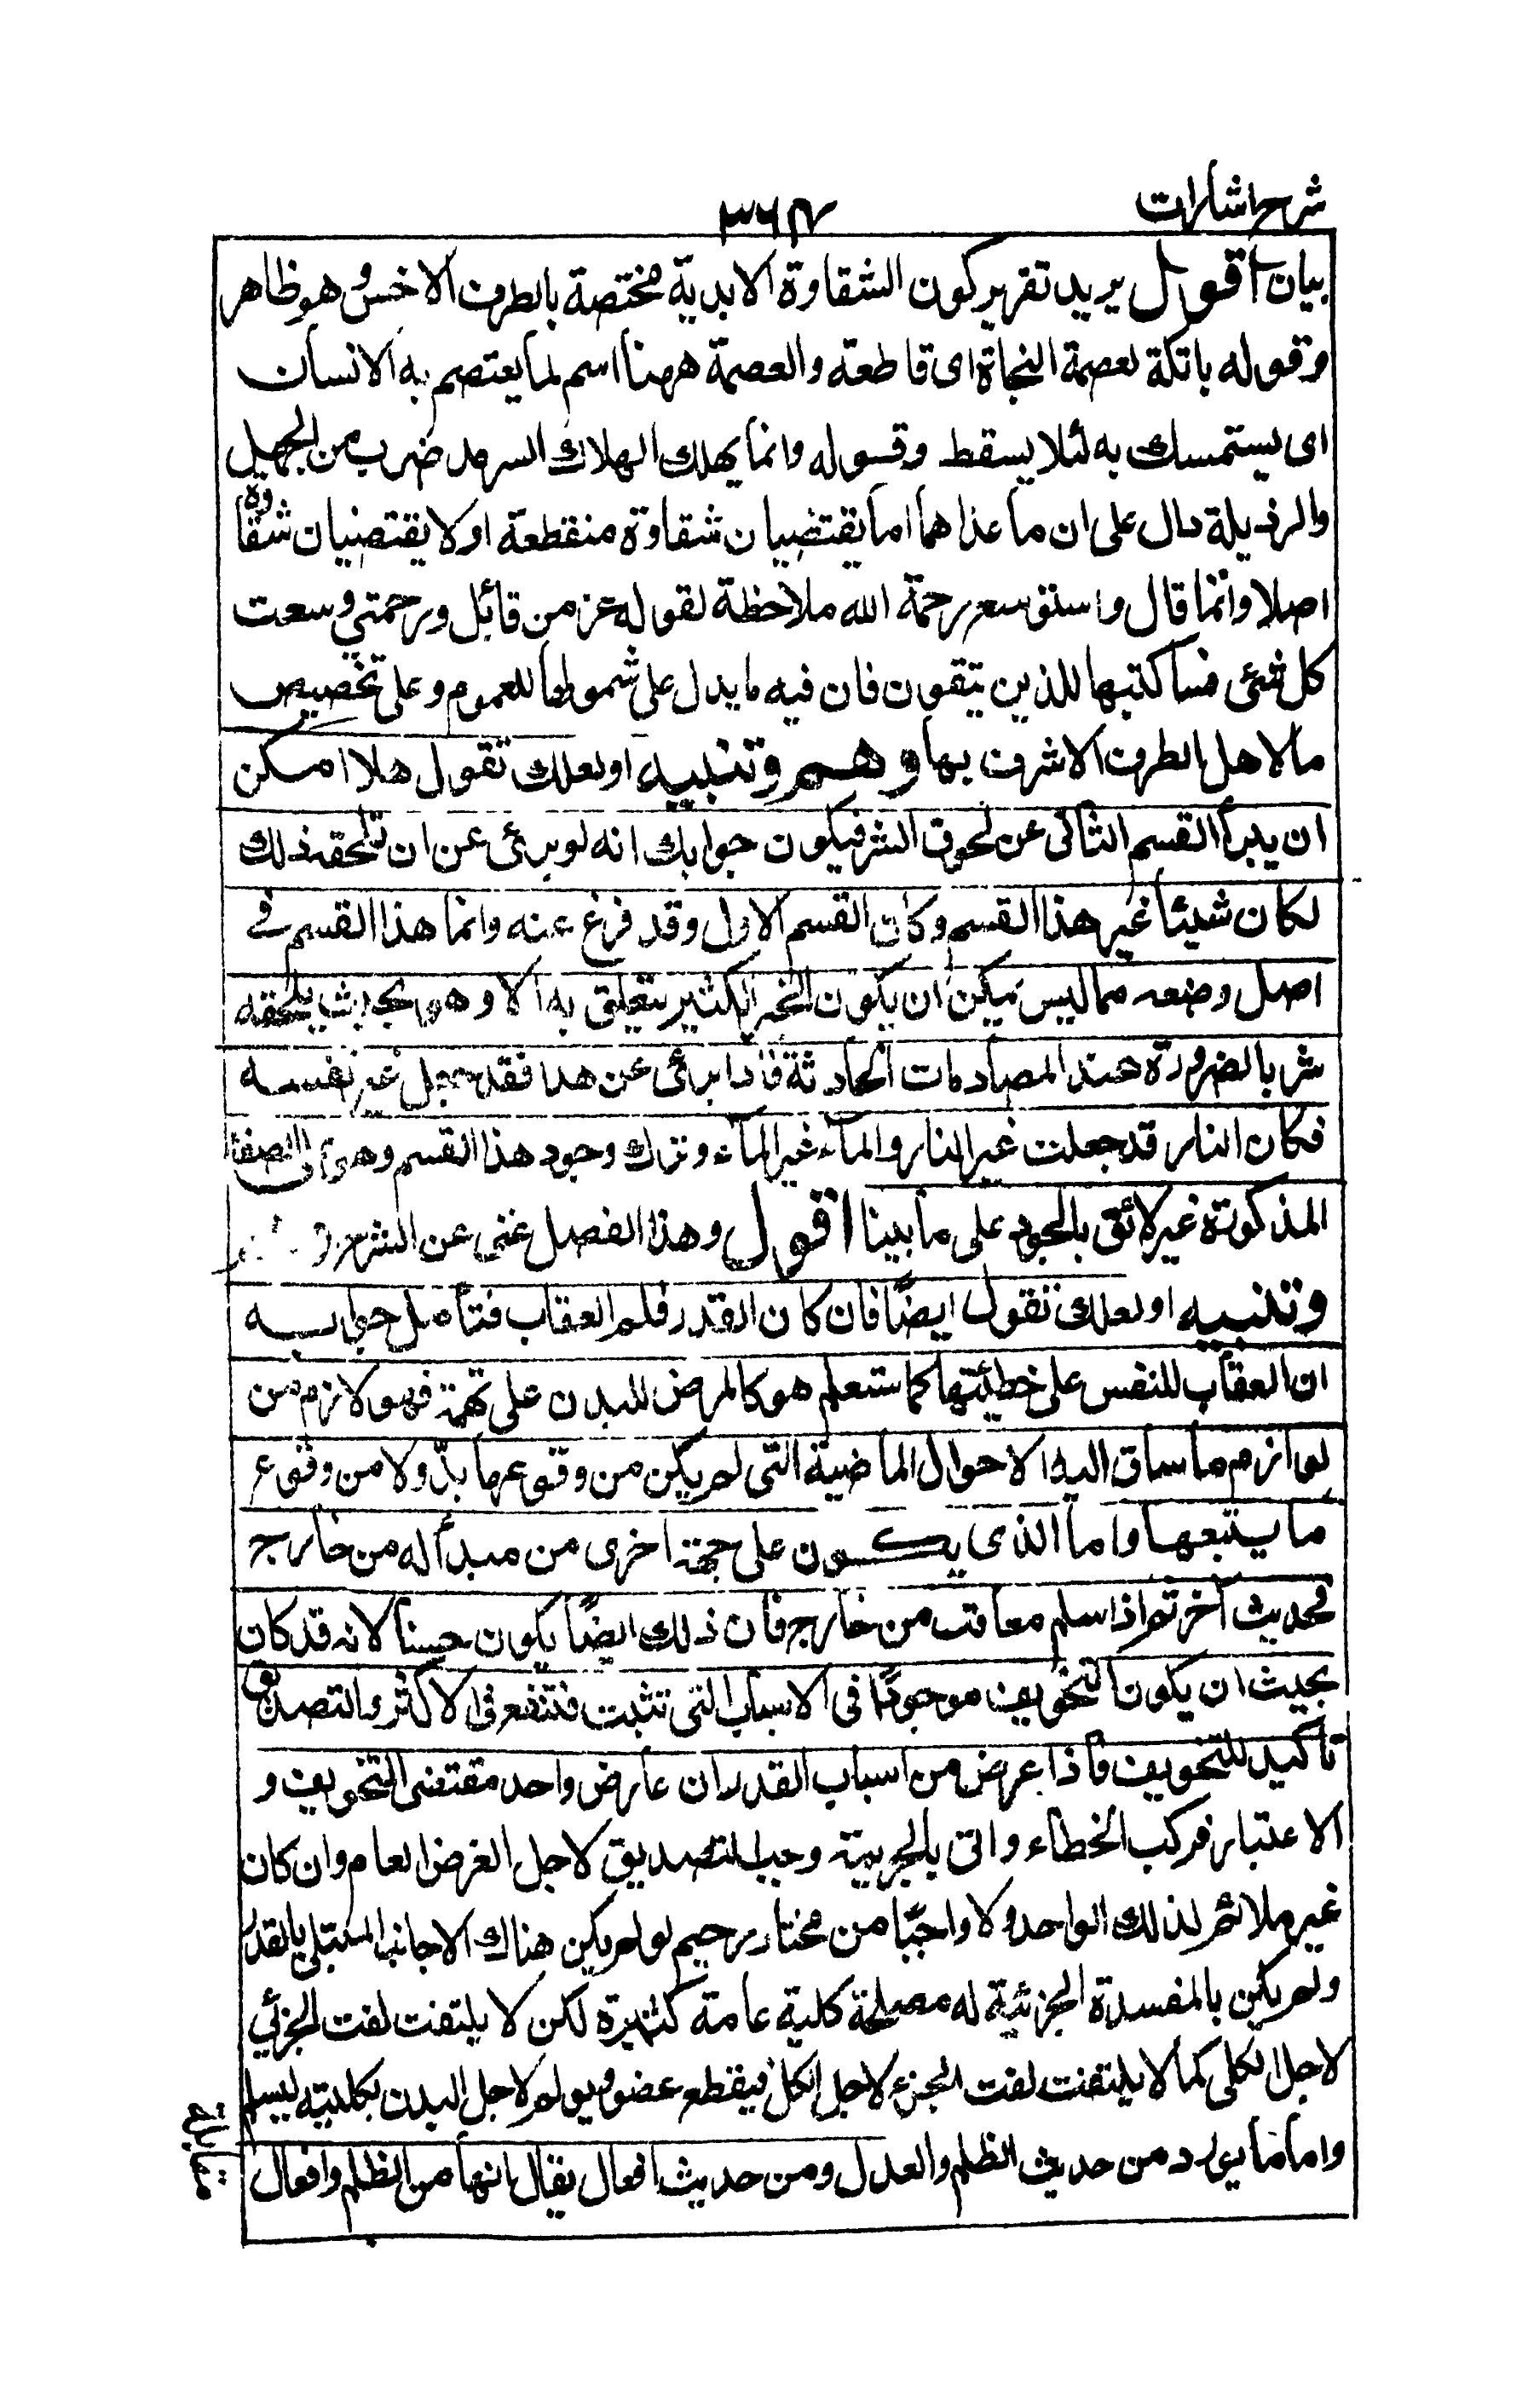 شرح اشارات
٣٦٤
بيان اقول يريد تقرير كون الشقاوة الابدية مختصة بالطرف الاخس وهو ظاهر
وقوله باتكة لعصمة النجاة اى قاطعة والعصمة ههنا اسم لما يعتصم به الانسان
اى يستمسك به لئلا يسقط وقوله وانما يهلك الهلاك السرمد ضرب من الجهل
والرذيلة دال على ان ما عداهما اما يقتضيان شقاوة منقطعة او لا يقتضيان شقاوة
اصلا وانما قال واستوسع رحمة الله ملاحظة لقوله عز من قائل ورحمتي وسعت
كل شئى فسأكتبها للذين يتقون فان فيه ما يدل على شمولها للعموم وعلى تخصيص
ما لاهل الطرف الاشرف بها وهم وتنبيه او لعلك تقول هلا امكن
ان يبرأ القسم الثانى عن لحوق الشر فيكون جوابك انه لو برئى عن ان تلحقه ذلك
لكان شيئا غير هذا القسم وكان القسم الاول وقد فرغ عنه وانما هذا القسم فے
اصل وضعه مما ليس يمكن ان يكون الخير الكثير يتعلق به الا وهو بحيث يلحقه
شر بالضرورة عند المصادمات الحادثة فاذا برئى عن هذا فقد جعل غير نفسه
فكان النار قد جعلت غير النار والماء غير الماء وترك وجود هذا القسم وهو على الصفة
المذكورة غير لائق بالجود على ما بينا اقول وهذا الفصل غنى عن الشرح
وتنبيه او لعلك تقول ايضًا فان كان القدر فلم العقاب فتأمل جوابه
ان العقاب للنفس على خطيئتها كما ستعلم هو كالمرض للبدن على نهمة فهو لازم من
لوازم ما ساق اليه الاحوال الماضية التى لم يكن من وقوعها بدّ ولا من وقوع
ما يتبعها واما الذى يكون على جهة اخرى من مبدأ له من خارج
فحديث آخر ثم اذا سلم معاقب من خارج فان ذلك ايضًا يكون حسنا لانه قد كان
يجيث ان يكون التخويف موجودًا فى الاسباب التى تثبت فتنفع فى الاكثر والتصديق
تأكيد للتخويف فاذا عرض من اسباب القدر ان عارض واحد مقتضى التخويف و
الاعتبار فركب الخطاء واتى بالجريمة وجب التصديق لاجل الغرض العام وان كان
غير ملائم لذلك الواحد ولا واجبًا من مختار رحيم لو لم يكن هناك الا جانب المبتلى بالقدر
ولم يكن بالمفسدة الجزئية له مصلحة كلية عامة كثيرة لكن لا يلتفت لفت الجزئي
لاجل الكلى كما لا يلتفت لفت الجزء لاجل الكل فيقطع عضو ويولم لاجل البدن بكليته ليسلم
واما ما يورد من حديث الظلم والعدل ومن حديث افعال يقال انها من الظلم وافعال